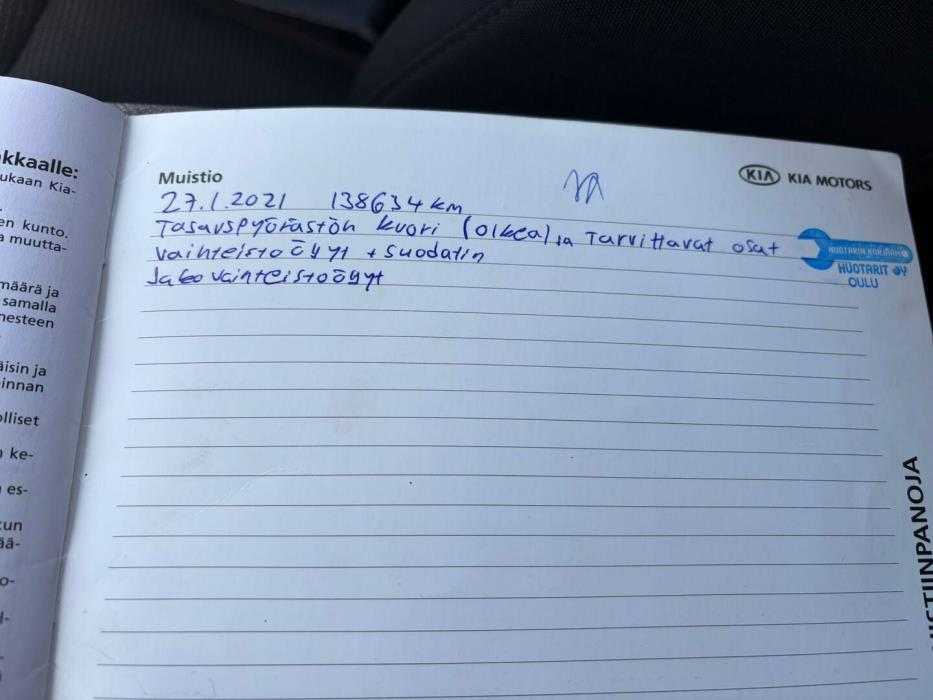 kkaalle:
ukaan Kia-
en kunto.
a muutta-
määrä ja
samalla
nesteen
äisin ja
innan
olliset
n ke-
es-
kun
ää-
o-
Muistio
KIA KIA MOTORS
27.1.2021 138634 km
Tasauspyörästön kuori (oikea) ja Tarvittavat osat
vaihteistoöyyt + suodatin
Jako vaihteistoöyyt
HUOTARIN KORJAAMO
HUOTARIT OY
OULU